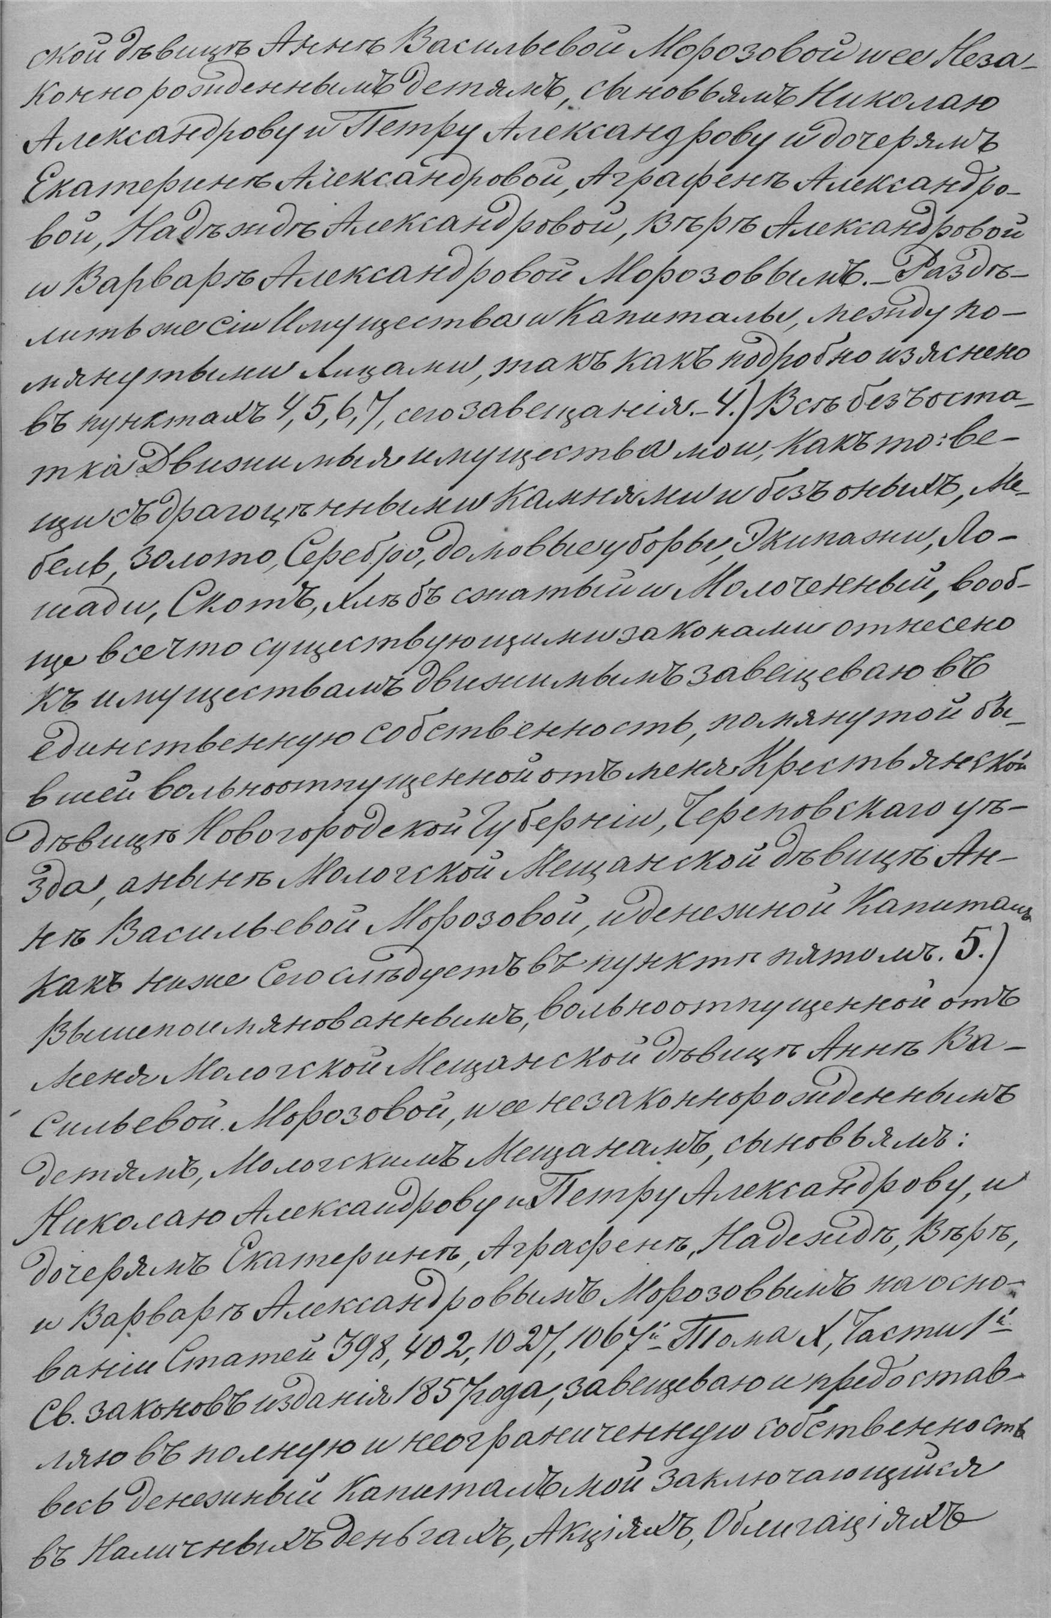 ской дѣвицѣ Аннѣ Васильевой Морозовой и ее Неза-
конно рожденнымъ детямъ, сыновьямъ Николаю
Александрову и Петру Александрову и дочерямъ
Екатеринѣ Александровой, Аграфенѣ Александро-
вой, Надѣждѣ Александровой, Вѣрѣ Александровой
и Варварѣ Александровой Морозовымъ. - Раздѣ-
лить же сіи Имущества и Капиталы, между по-
мянутыми Лицами, такъ какъ подробно изяснено
въ пунктахъ 4, 5, 6, 7, сего завещанія. - 4.) Всѣ безъ оста-
тка Движимыя имущества мои, какъ то: ве-
щи съ драгоцѣнными Камнями и безъ оныхъ, Ме-
бель, Золото, Серебро, домовые уборы, Экипажи, Ло-
шади, Скотъ, Хлѣбъ сжатый и Молоченный, вооб-
ще все что существующими законами отнесено
къ имуществамъ движимымъ завещеваю въ
единственную собственность, помянутой бы-
вшей вольноотпущенной отъ меня Крестьянской
дѣвицѣ Новогородской Губерніи, Череповскаго уѣ-
зда, а нынѣ Мологской Мещанской дѣвицѣ Ан-
нѣ Васильевой Морозовой, и денежной Капиталъ
какъ ниже Сего слѣдуетъ въ пунктѣ пятомъ. 5.)
Вышепоимянованнымъ, вольноотпущенной отъ
Меня Мологской Мещанской дѣвицѣ Аннѣ Ва-
сильевой Морозовой, и ее незаконнорожденнымъ
детямъ, Мологскимъ Мещанамъ, сыновьямъ:
Николаю Александрову и Петру Александрову, и
дочерямъ Екатеринѣ, Аграфенѣ, Надеждѣ, Вѣрѣ,
и Варварѣ Александровымъ Морозовымъ на осно-
ваніи Статей 398, 402, 1027, 1067й Тома X, Части 1й
Св. законовъ изданія 1857 года, завещеваю и предостав-
ляю въ полную и неограниченную собственность
весь денежный Капиталъ мой заключающійся
въ Наличныхъ деньгахъ, Акціяхъ, Облигаціяхъ